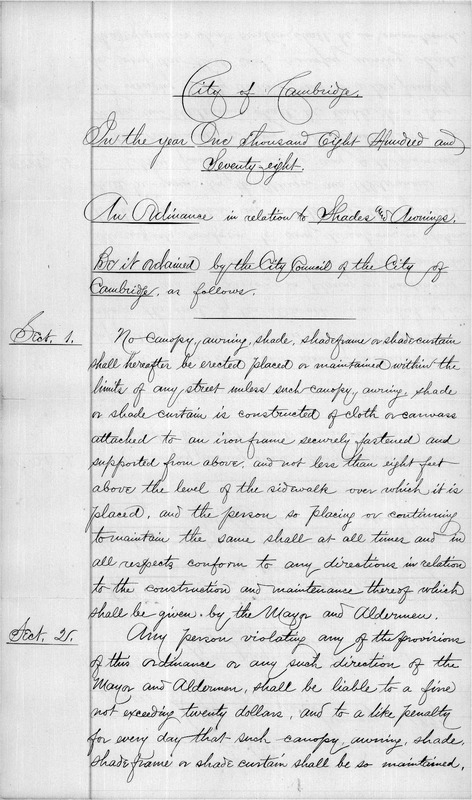 City of Cambridge.
In the year One Thousand Eight Hundred and
Seventy-eight.
An Ordinance in relation to Shades and Awnings.
Be it ordained by the City Council of the City of
Cambridge, as follows.
Sect. 1. No canopy, awning, shade, shadeframe or shade curtain
shall hereafter be erected placed or maintained within the
limits of any street unless such canopy, awning, shade
or shade curtain is constructed of cloth or canvass
attached to an iron frame securely fastened and
supported from above, and not less than eight feet
above the level of the sidewalk over which it is
placed, and the person so placing or continuing
to maintain the same shall at all times and in
all respects conform to any directions in relation
to the construction and maintenance thereof which
shall be given by the Mayor and Aldermen.
Sect. 2. Any person violating any of the provisions
of this ordinance or any such direction of the
Mayor and Aldermen, shall be liable to a fine
not exceeding twenty dollars, and to a like penalty
for every day that such canopy, awning, shade,
shade frame or shade curtain shall be so maintained.